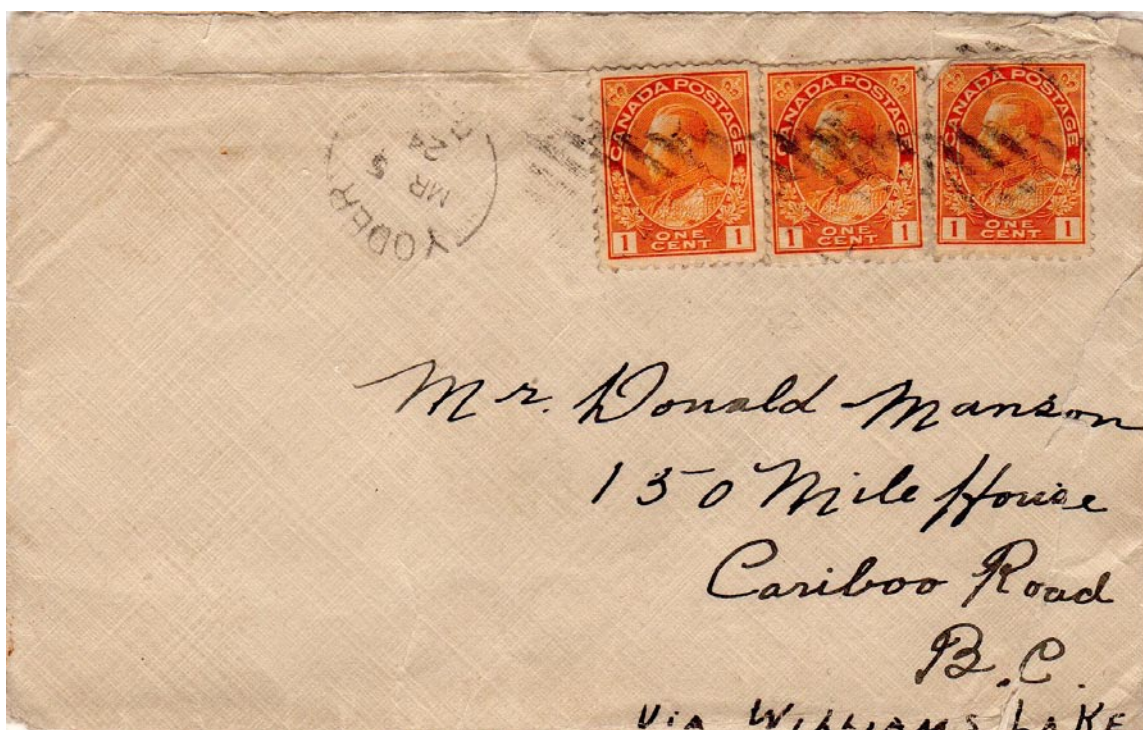 YODER
MR 5
24
CANADA POSTAGE
1 ONE CENT 1
CANADA POSTAGE
1 ONE CENT 1
CANADA POSTAGE
1 ONE CENT 1
Mr. Donald Manson
150 Mile House
Cariboo Road
B.C.
Via WILLIAMS LAKE